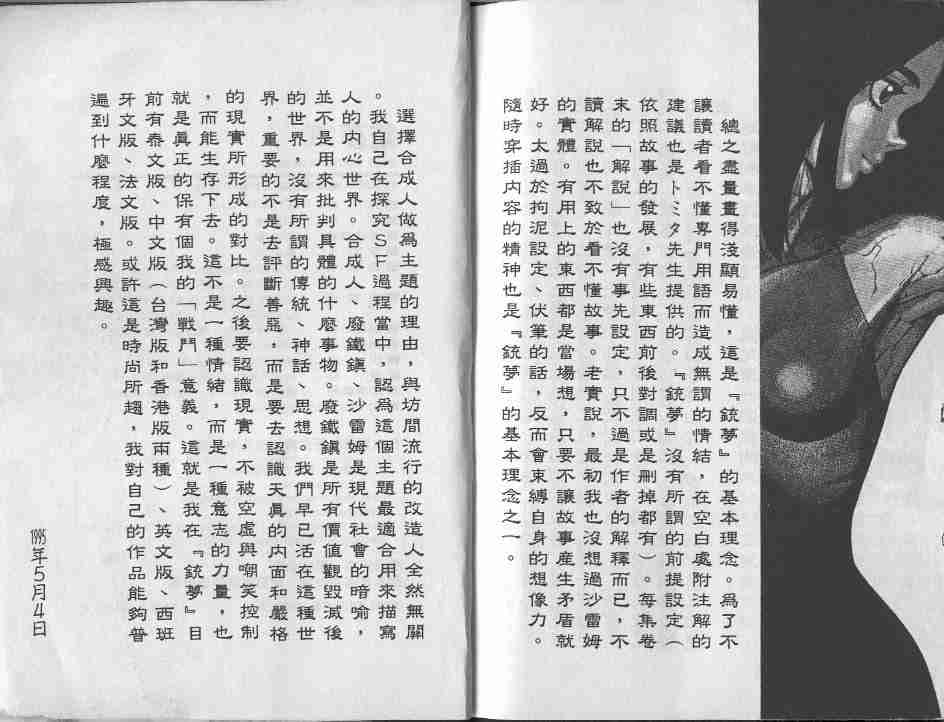 總之盡量畫得淺顯易懂，這是『銃夢』的基本理念。為了不
讓讀者看不懂專門用語而造成無謂的情結，在空白處附注解的
建議也是トミタ先生提供的。『銃夢』沒有所謂的前提設定（
依照故事的發展，有些東西前後對調或是刪掉都有）。每集卷
末的「解說」也沒有事先設定，只不過是作者的解釋而已，不
讀解說也不致於看不懂故事。老實說，最初我也沒想過沙雷姆
的實體。有用上的東西都是當場想，只要不讓故事產生矛盾就
好。太過於拘泥設定、伏筆的話，反而會束縛自身的想像力。
隨時穿插内容的精神也是『銃夢』的基本理念之一。
選擇合成人做為主題的理由，與坊間流行的改造人全然無關
。我自己在探究ＳＦ過程當中，認為這個主題最適合用來描寫
人的内心世界。合成人、廢鐵鎮、沙雷姆是現代社會的暗喻，
並不是用來批判具體的什麼事物。廢鐵鎮是所有價值觀毀滅後
的世界，沒有所謂的傳統、神話、思想。我們早已活在這種世
界，重要的不是去評斷善惡，而是要去認識天真的内面和嚴格
的現實所形成的對比。之後要認識現實，不被空虛與嘲笑控制
，而能生存下去。這不是一種情緒，而是一種意志的力量，也
就是真正的保有個我的「戰鬥」意義。這就是我在『銃夢』目
前有泰文版、中文版（台灣版和香港版兩種）、英文版、西班
牙文版、法文版。或許這是時尚所趨，我對自己的作品能夠普
遍到什麼程度，極感興趣。
1995年5月4日